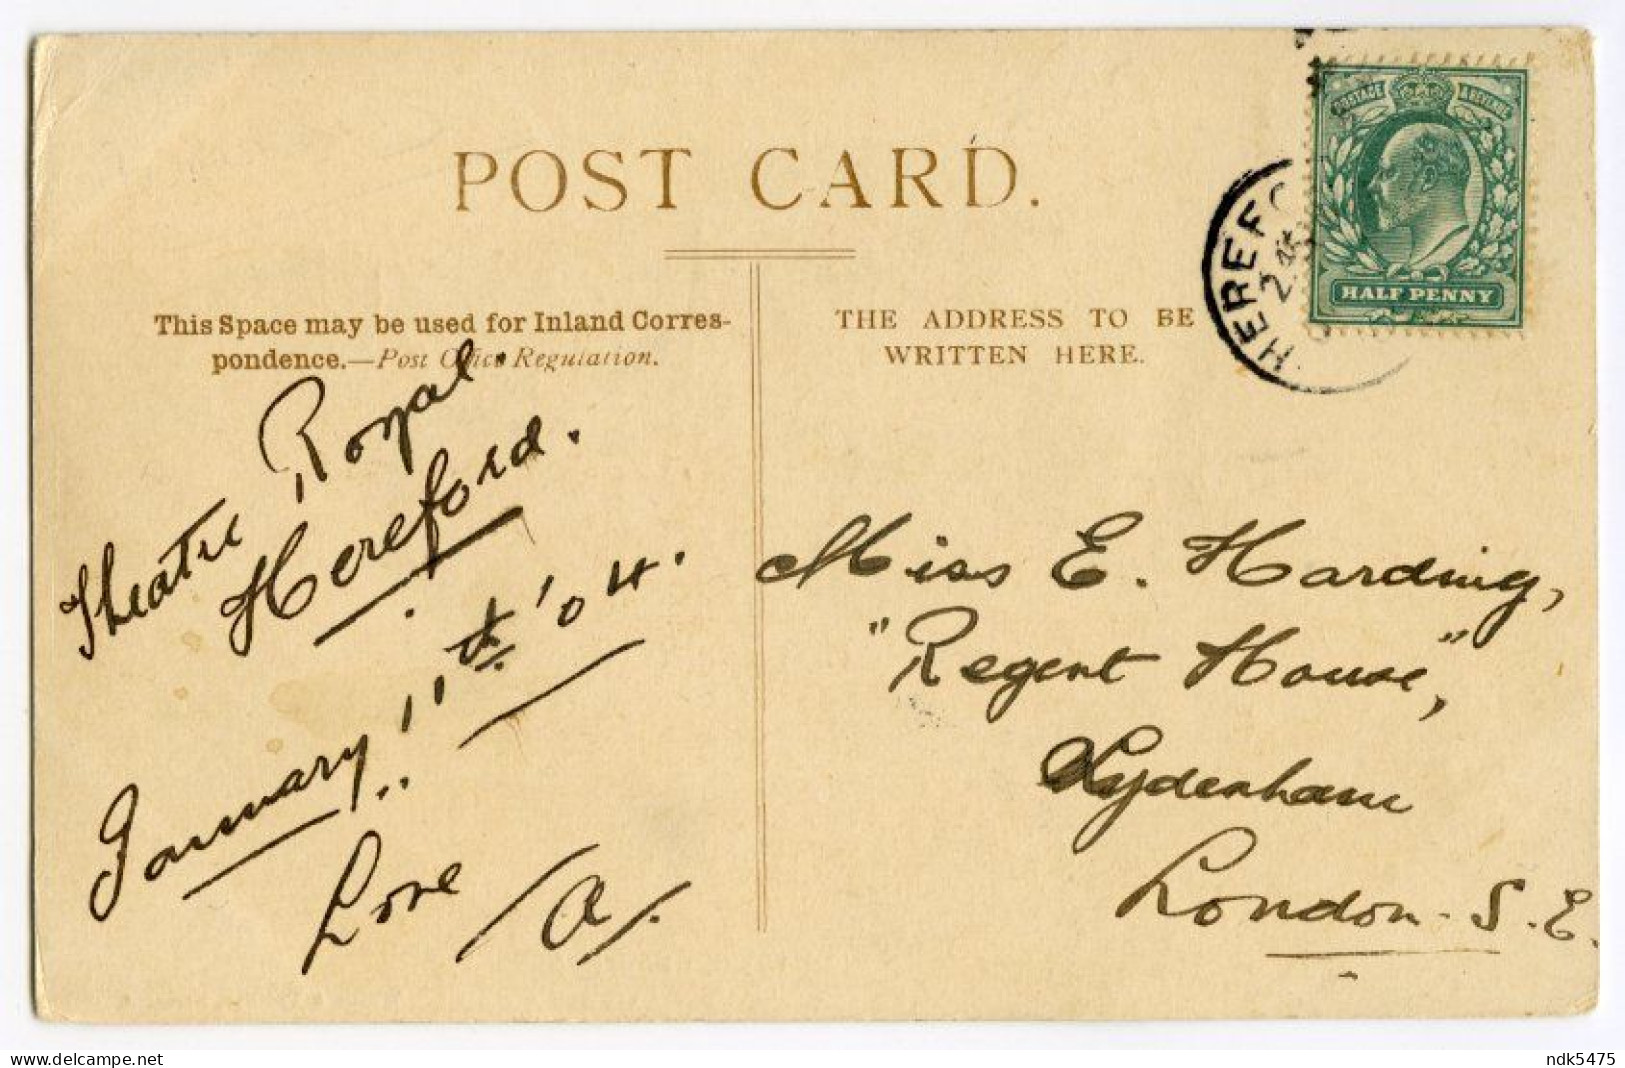 POST CARD.
This Space may be used for Inland Corres-
pondence.—Post Office Regulation.
THE ADDRESS TO BE
WRITTEN HERE.
POSTAGE
HALF PENNY
HEREFO
Theatre Royal.
Hereford.
January 11th '04.
Love /A/.
Miss E. Harding,
"Regent House",
Sydenham
London. S.E.
www.delcampe.net
ndk5475